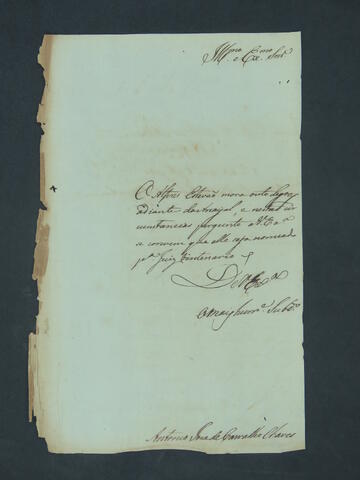 Illmo e Exmo Snr
O Alferes Estevão mora oito legoas
adiante do arrayal, e nestas cir
cumstancias pergunto a V. Exa
se convem que elle seja nomeado
pa Juiz Vintenario
De V. Exa
o mais hume Subdo
Antonio Joze de Carvalho Chaves